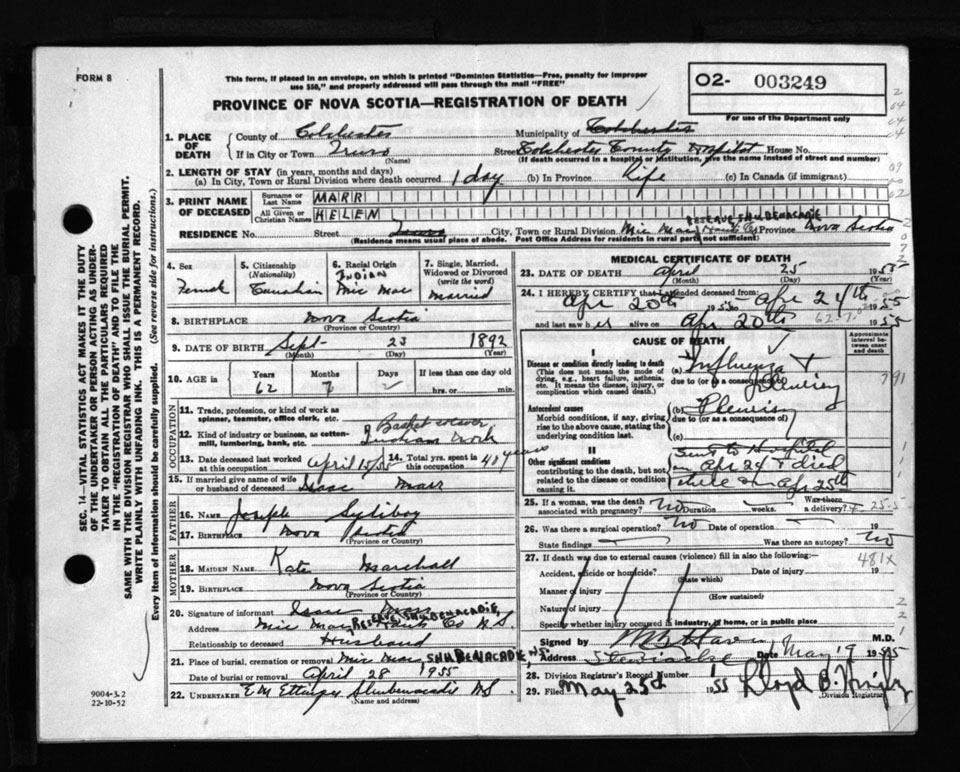 FORM 8
This form, if placed in an envelope, on which is printed "Dominion Statistics—Free, penalty for improper
use $50," and properly addressed will pass through the mail "FREE"
02- 003249
For use of the Department only
PROVINCE OF NOVA SCOTIA—REGISTRATION OF DEATH
1. PLACE OF DEATH County of Colchester Municipality of Colchester
If in City or Town Truro (Name) Street Colchester County Hospital House No.
(If death occurred in a hospital or institution, give the name instead of street and number)
2. LENGTH OF STAY (in years, months and days)
(a) In City, Town or Rural Division where death occurred 1 day (b) In Province Life (c) In Canada (if immigrant)
3. PRINT NAME OF DECEASED Surname or Last Name MARR
All Given or Christian Names HELEN
RESERVE SHUBENACADIE
RESIDENCE No. Street City, Town or Rural Division Mic Mac Hants Co Province Nova Scotia
(Residence means usual place of abode. Post Office Address for residents in rural parts not sufficient)
4. Sex Female
5. Citizenship (Nationality) Canadian
6. Racial Origin INDIAN Mic Mac
7. Single, Married, Widowed or Divorced (write the word) Married
8. BIRTHPLACE Nova Scotia
(Province or Country)
9. DATE OF BIRTH Sept 23 1892
(Month) (Day) (Year)
10. AGE in Years 62 Months 7 Days If less than one day hrs. or min.
OCCUPATION
11. Trade, profession, or kind of work as spinner, teamster, office clerk, etc. Basket weaver
12. Kind of industry or business, as cotton-mill, lumbering, bank, etc. Work
13. Date deceased last worked at this occupation April 15/55
14. Total yrs. spent in this occupation 40 years
15. If married give name of wife or husband of deceased Isaac Marr
FATHER
16. NAME Joseph Syliboy
17. BIRTHPLACE Nova Scotia
(Province or Country)
MOTHER
18. MAIDEN NAME Kate Marshall
19. BIRTHPLACE Nova Scotia
(Province or Country)
20. Signature of informant Isaac Marr
RESERVE SHUBENACADIE
Address Mic Mac Hants Co N.S.
Relationship to deceased Husband
21. Place of burial, cremation or removal Mic Mac SHUBENACADIE, NS.
Date of burial or removal April 28 1955
22. UNDERTAKER E M Ettinger Shubenacadie NS.
(Name and address)
MEDICAL CERTIFICATE OF DEATH
23. DATE OF DEATH April 25 1955
(Month) (Day) (Year)
24. I HEREBY CERTIFY that I attended deceased from:
Apr 20th 1955 to Apr 24th 1955
and last saw her alive on Apr 20th 1955
CAUSE OF DEATH
Approximate interval between onset and death
I
Disease or condition directly leading to death
(This does not mean the mode of dying, e.g., heart failure, asthenia, etc. It means the disease, injury, or complication which caused death.)
(a) Influenza + Pleurisy
due to (or as a consequence of)
Antecedent causes
Morbid conditions, if any, giving rise to the above cause, stating the underlying condition last.
(b) Pleurisy
due to (or as a consequence of)
(c)
II
Other significant conditions contributing to the death, but not related to the disease or condition causing it.
Sent to Hospital
on Apr 24 & died
there on Apr 25th
25. If a woman, was the death associated with pregnancy? no Duration weeks. Was there a delivery?
26. Was there a surgical operation? no Date of operation 19
State findings Was there an autopsy? no
27. If death was due to external causes (violence) fill in also the following:—
481x
Accident, suicide or homicide? (State which) Date of injury 19
Manner of injury (How sustained)
Nature of injury
Specify whether injury occurred in industry, in home, or in public place
Signed by M.D.
Address Stewiacke Date May 9 1955
28. Division Registrar's Record Number
29. Filed May 23rd 1955 Lloyd B.
Division Registrar
SEC. 14—VITAL STATISTICS ACT MAKES IT THE DUTY
OF THE UNDERTAKER OR PERSON ACTING AS UNDER-
TAKER TO OBTAIN ALL THE PARTICULARS REQUIRED
IN THE "REGISTRATION OF DEATH" AND TO FILE THE
SAME WITH THE DIVISION REGISTRAR WHO SHALL ISSUE THE BURIAL PERMIT.
WRITE PLAINLY WITH UNFADING INK. THIS IS A PERMANENT RECORD.
Every item of information should be carefully supplied. (See reverse side for instructions.)
9004-3.2
22-10-52